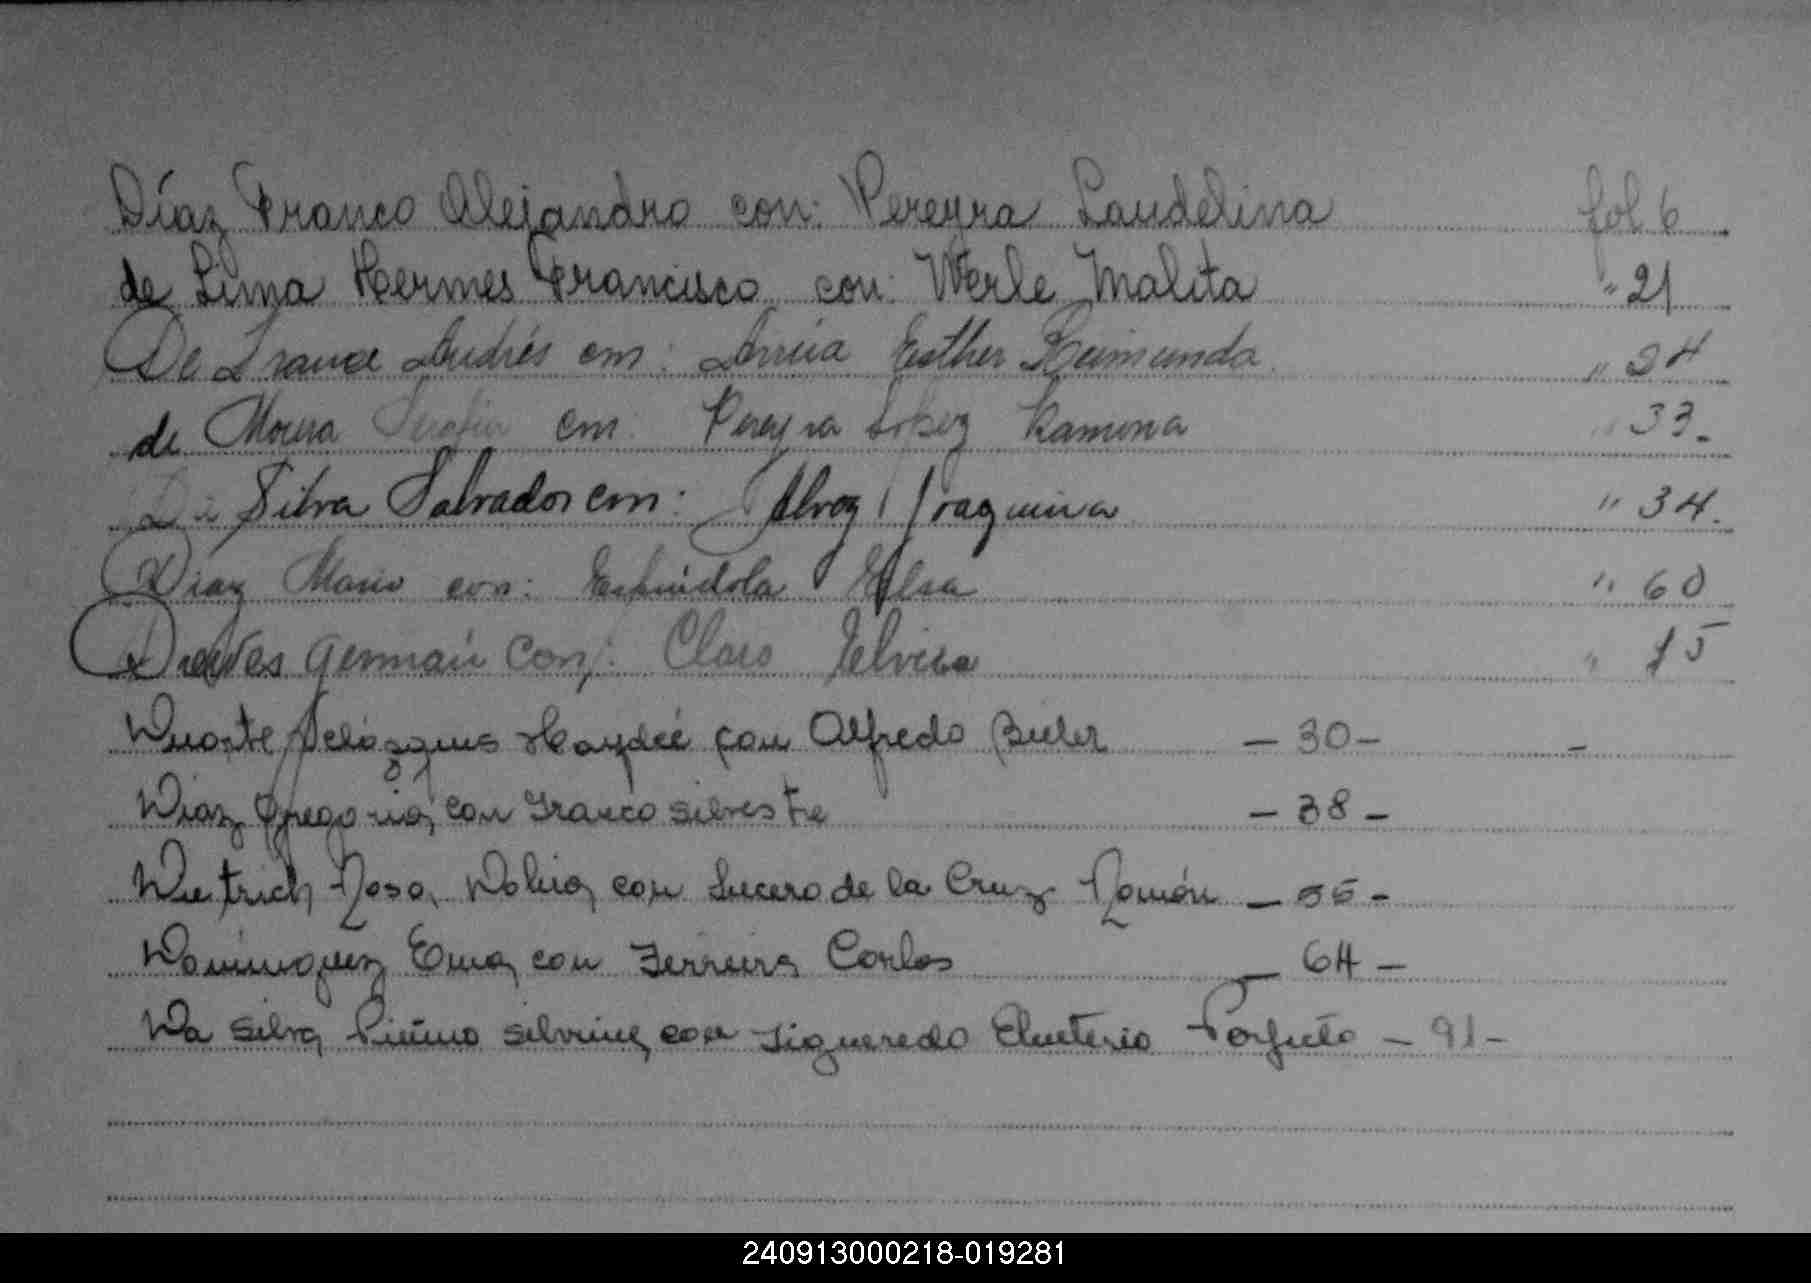 Díaz Franco Alejandro con: Pereyra Laudelina fol 6
de Lima Hermes Francisco con: Werle Malita " 21
De Andrés con: Arrúa Esther Raimunda " 24
de Moura Serafin con: Pereyra López Ramona " 33.
Da Silva Salvador con: Joaquina " 34.
Diaz Mario con: Espíndola Elsa " 60
Germán con: Claro Elvira " 15
Duarte Haydée con Alfredo Bieler — 30 — –
Diaz Gregoria, con Franco Silvestre — 38 —
Dietrich Rosa, Delia, con Lucero de la Cruz Ramón — 55 –
Dominguez Ema, con Ferreira Carlos — 64 —
Da Silva, con Figueredo Eleuterio — 91 –
240913000218-019281